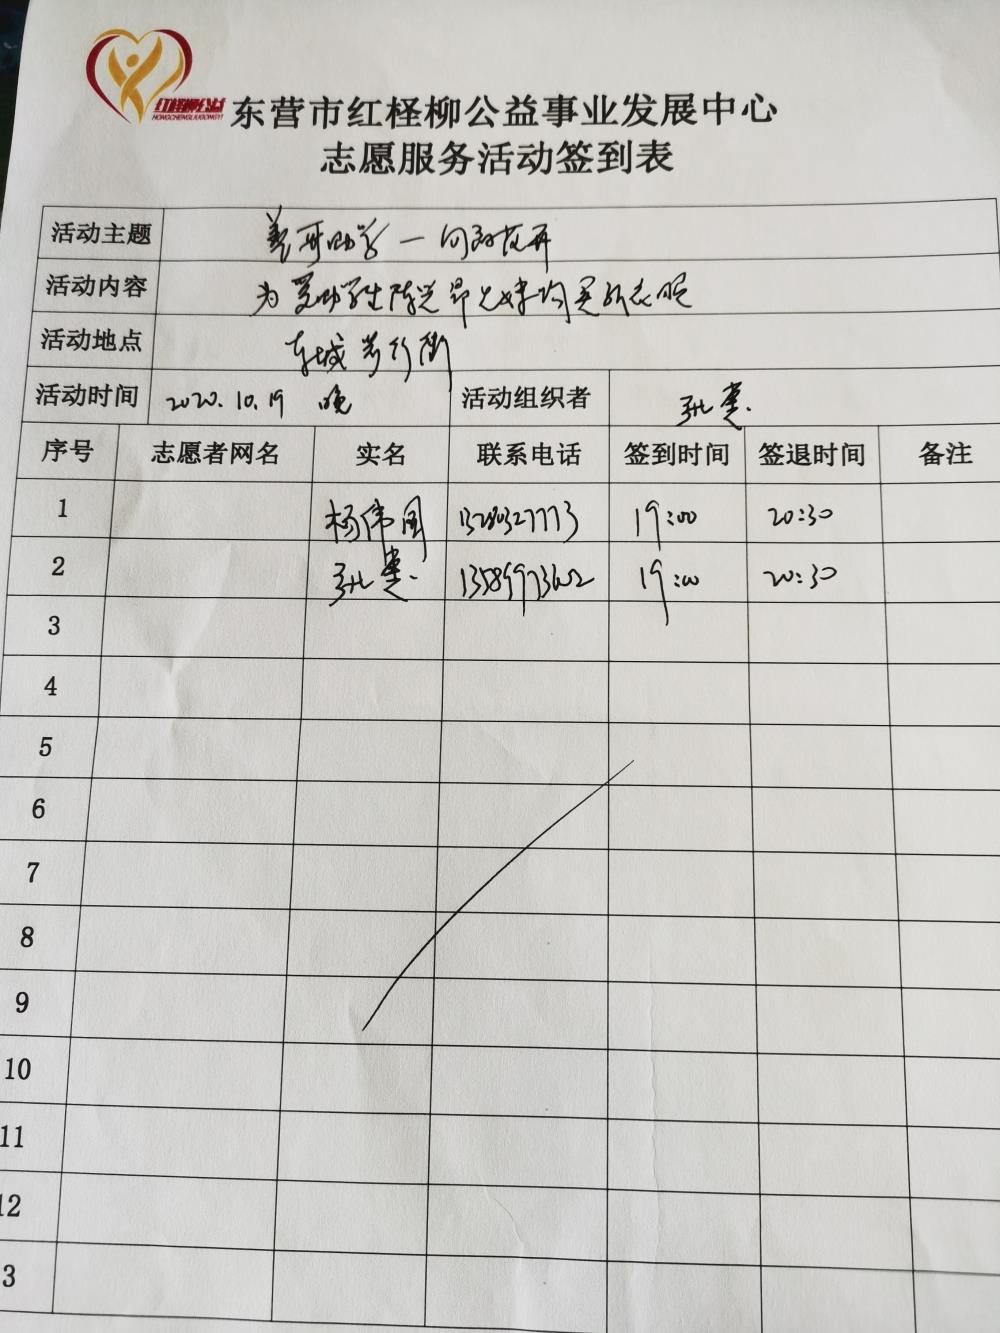 红柽柳公益
HONGCHENGLIUGONGYI
东营市红柽柳公益事业发展中心
志愿服务活动签到表
活动主题 善行助学一向阳花开
活动内容 为受助学生陈 昂兄妹 买新衣服
活动地点 东城步行街
活动时间 2020.10.19 晚 活动组织者 张
序号 志愿者网名 实名 联系电话 签到时间 签退时间 备注
1 杨伟国 13280327773 19:00 20:30
2 张 13589973602 19:00 20:30
3
4
5
6
7
8
9
10
11
12
3